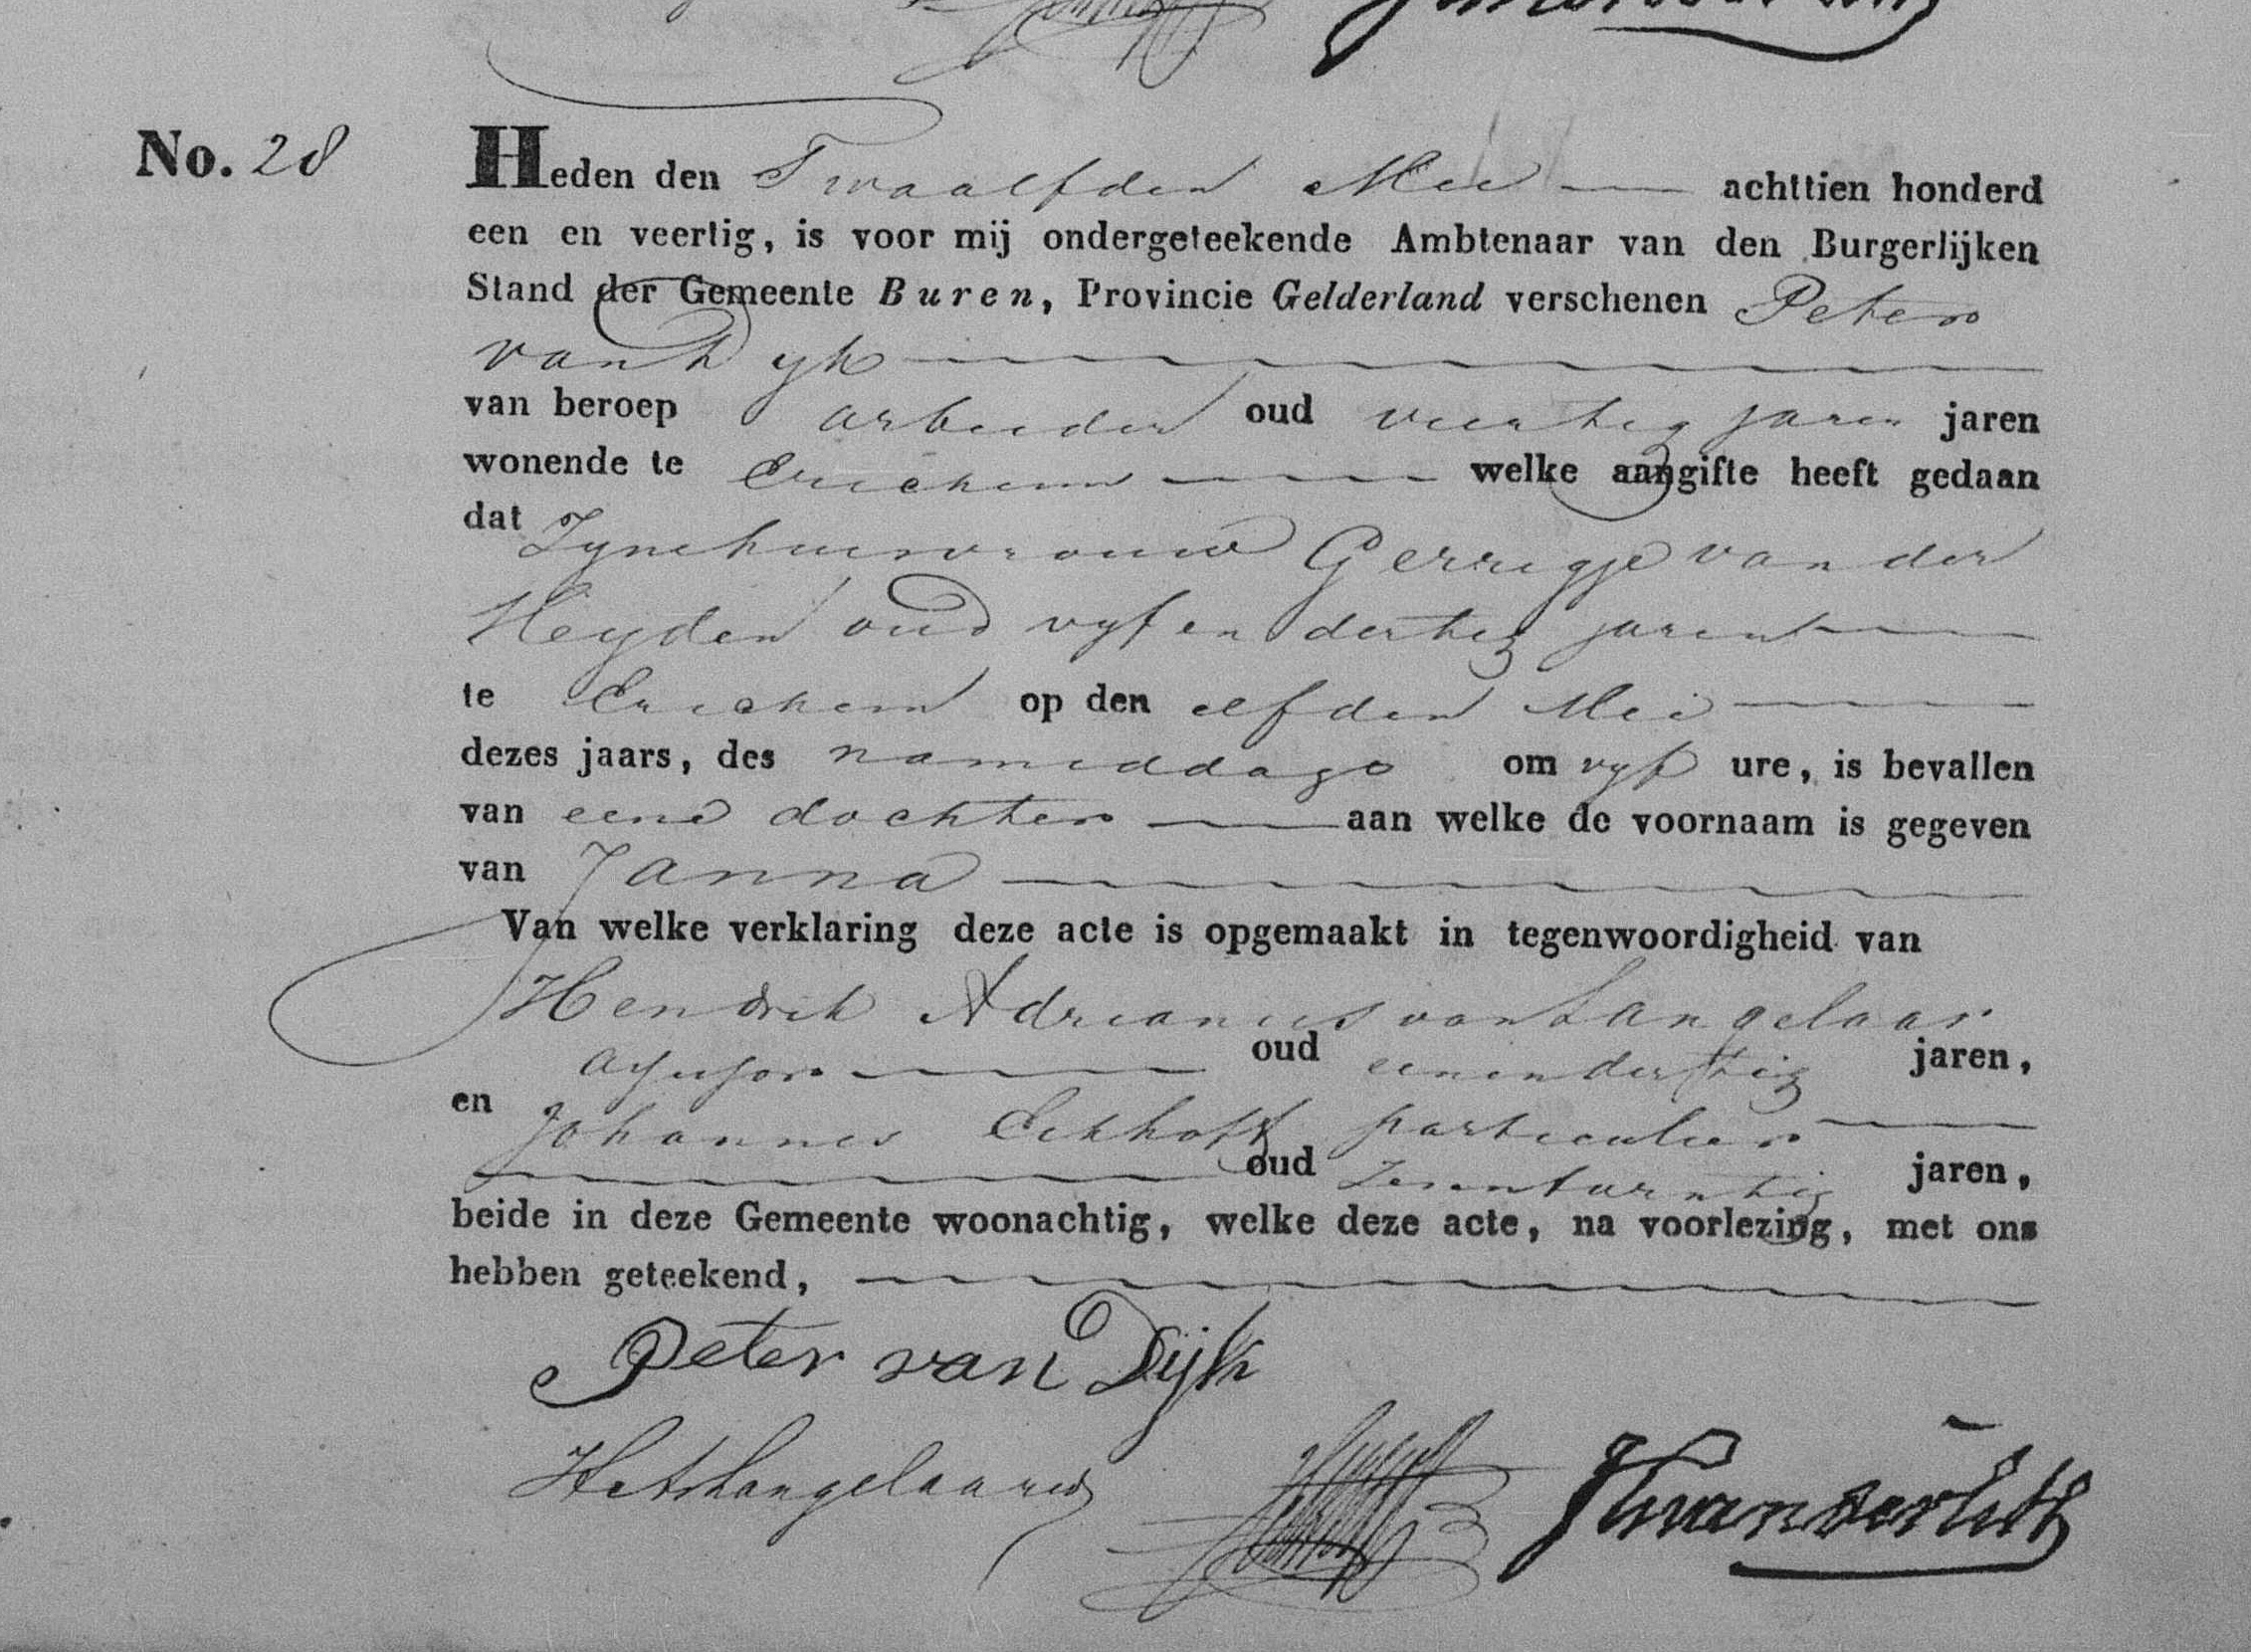 No. 28
Heden den Twaalfden Mei achttien honderd
een en veertig, is voor mij ondergeteekende Ambtenaar van den Burgerlijken
Stand der Gemeente Buren, Provincie Gelderland verschenen Peter
van Dyk
van beroep arbeider oud veertig jaren jaren
wonende te Erichem welke aangifte heeft gedaan
dat Zyne huisvrouw Gerrigje van der
Heyden oud vyf en dertig jaren
te Erichem op den elfden Mei
dezes jaars, des namiddags om vyf ure, is bevallen
van eene dochter aan welke de voornaam is gegeven
van Janna
Van welke verklaring deze acte is opgemaakt in tegenwoordigheid van
Hendrik Adrianus van Langelaar
oud eenendertig jaren,
en Johannes Eekhoff particulier
oud Zesentwintig jaren,
beide in deze Gemeente woonachtig, welke deze acte, na voorlezing, met ons
hebben geteekend,
Peter van Dijk